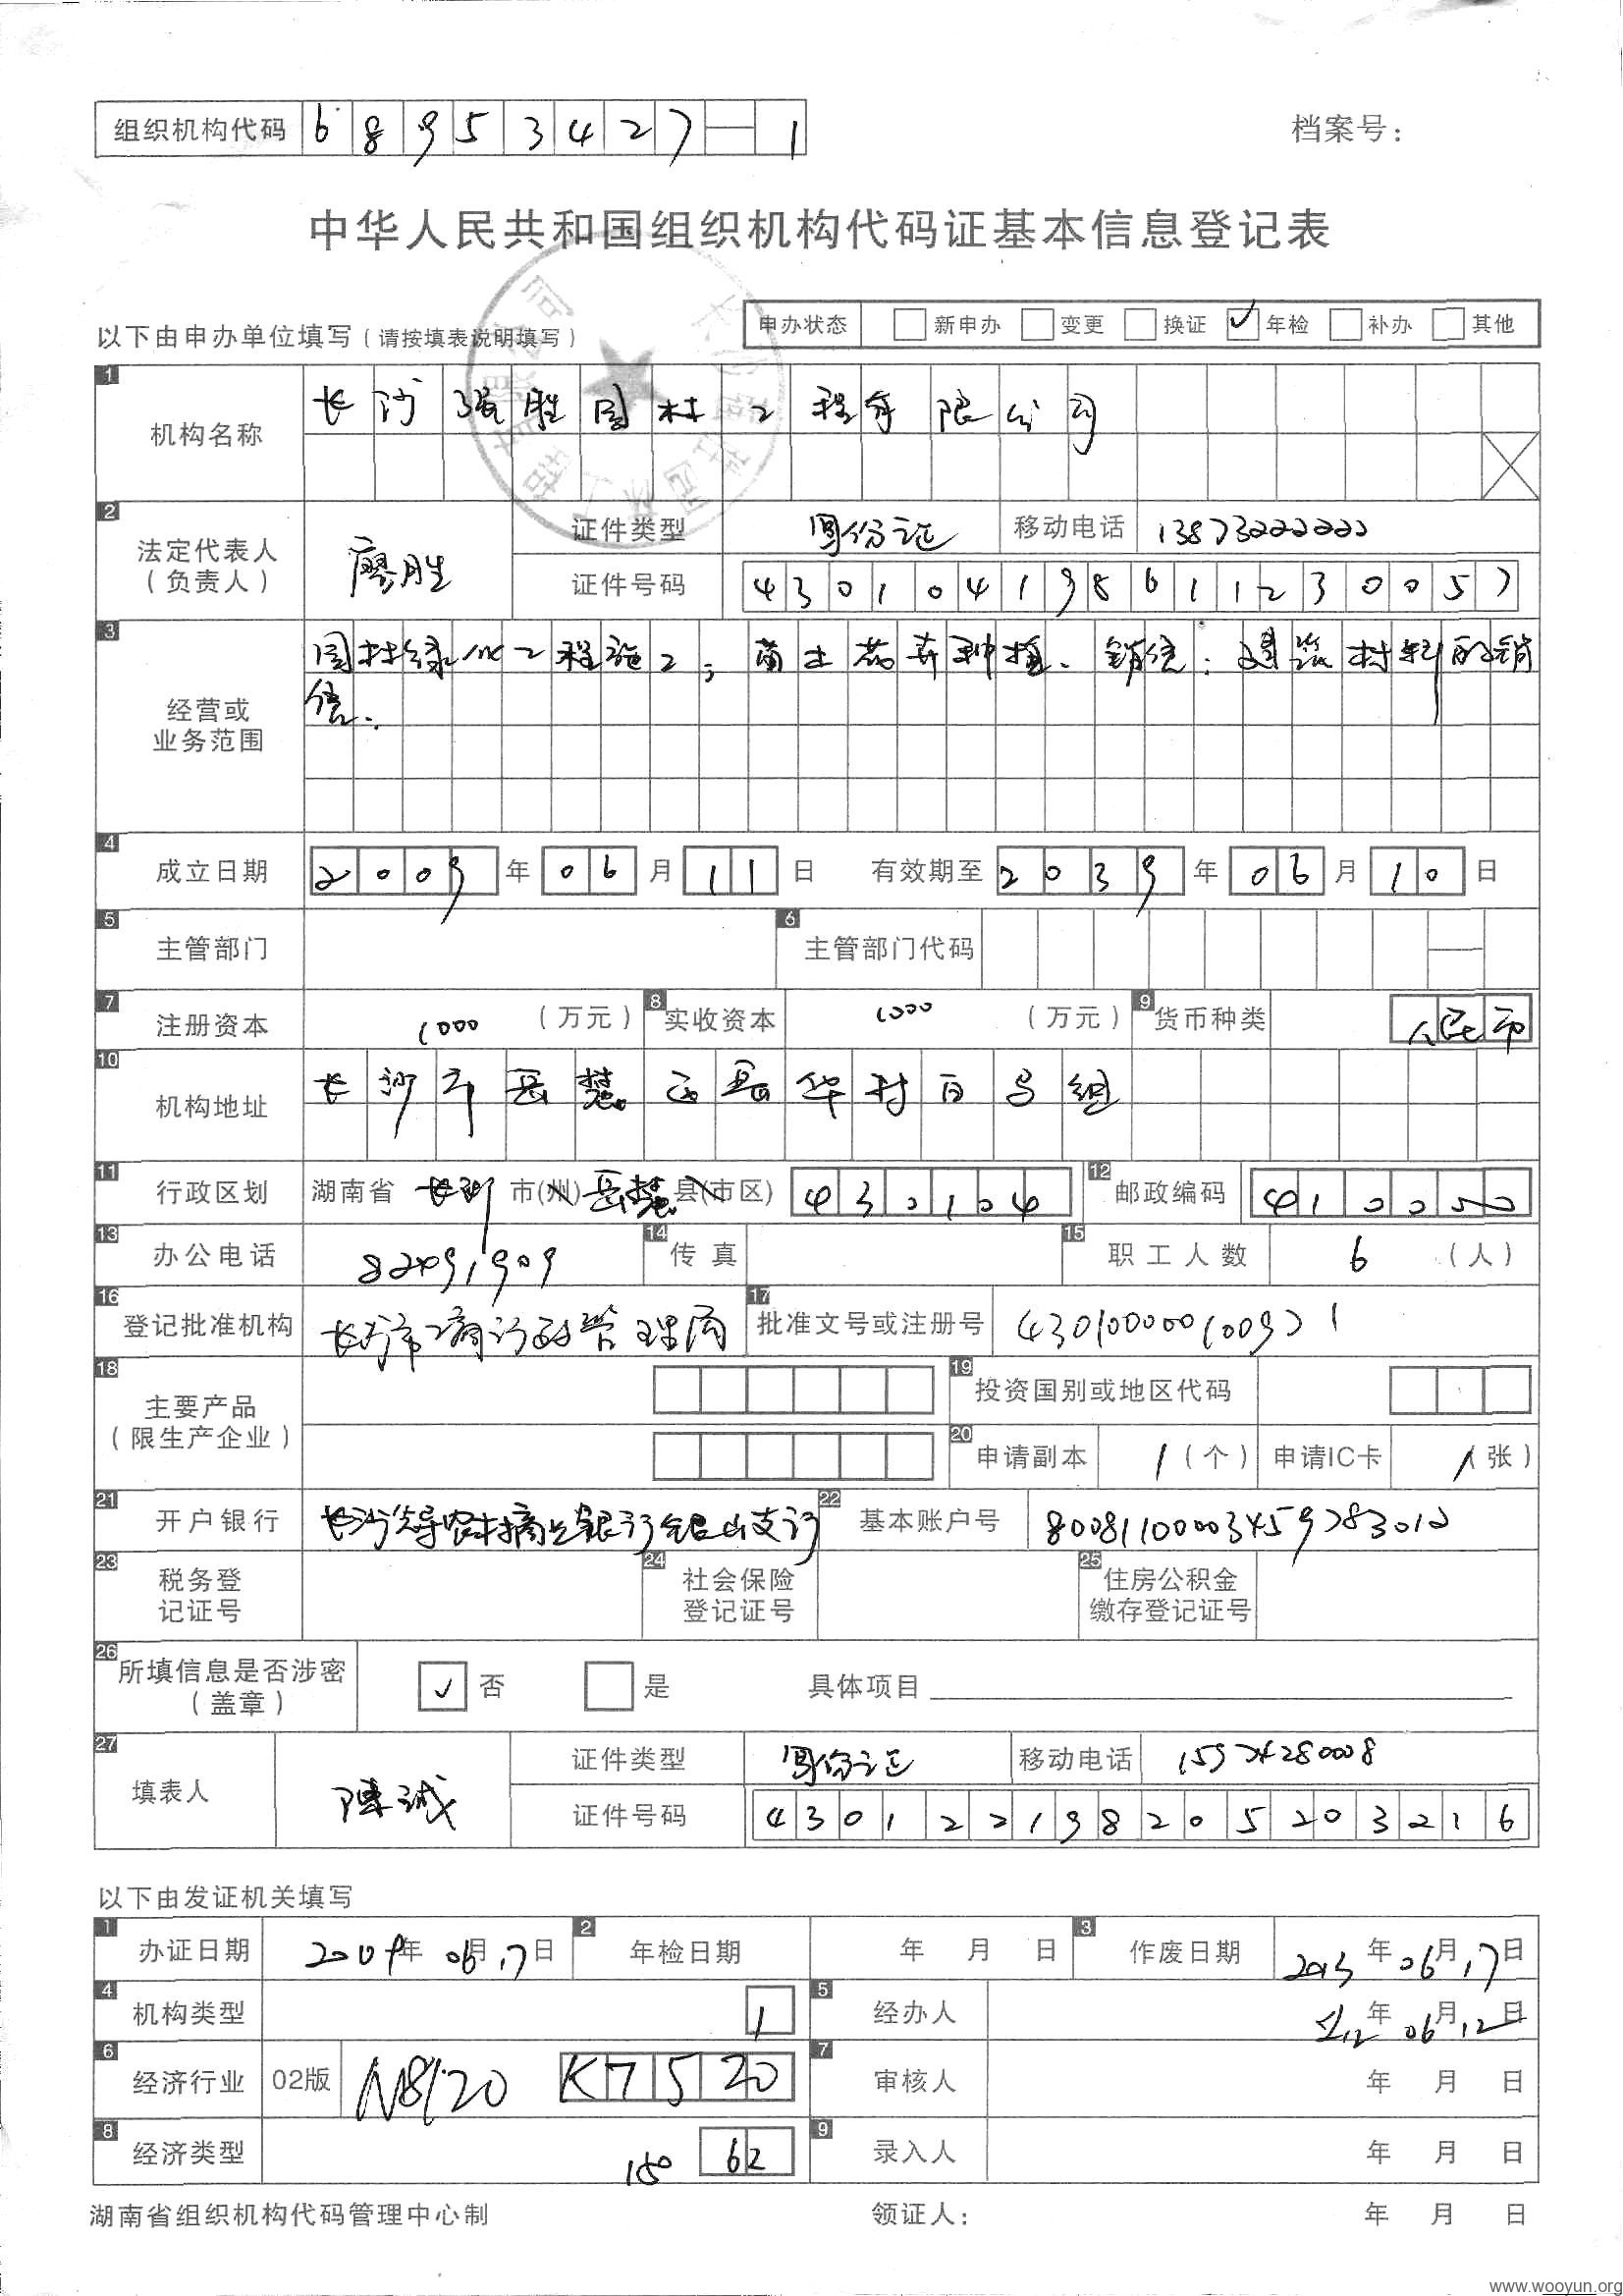 组织机构代码 68953427—1
档案号：
中华人民共和国组织机构代码证基本信息登记表
以下由申办单位填写（请按填表说明填写）
申办状态 □新申办 □变更 □换证 ☑年检 □补办 □其他
1 机构名称 长沙强胜园林工程有限公司
2 法定代表人（负责人） 廖胜 证件类型 身份证 移动电话 13873222222
证件号码 430104198611230057
3 经营或业务范围 园林绿化工程施工；苗木花卉种植、销售；建筑材料的销
售.
4 成立日期 2009年06月11日 有效期至 2039年06月10日
5 主管部门 6 主管部门代码 —
7 注册资本 1000（万元） 8 实收资本 1000（万元） 9 货币种类 人民币
10 机构地址 长沙市岳麓区岳华村百号组
11 行政区划 湖南省 长沙 市(州) 岳麓 县(市区) 430104 12 邮政编码 410050
13 办公电话 82091909 14 传真 15 职工人数 6（人）
16 登记批准机构 长沙市工商行政管理局 17 批准文号或注册号 430100000100971
18 主要产品（限生产企业） 19 投资国别或地区代码
20 申请副本 1（个） 申请IC卡 1（张）
21 开户银行 农村商业银行 支行 22 基本账户号 800811000034597283012
23 税务登记证号 24 社会保险登记证号 25 住房公积金缴存登记证号
26 所填信息是否涉密（盖章） ☑否 □是 具体项目
27 填表人 陈诚 证件类型 身份证 移动电话 15974280008
证件号码 430122198205203216
以下由发证机关填写
1 办证日期 2009年06月17日 2 年检日期 年 月 日 3 作废日期 2013年06月17日
4 机构类型 1 5 经办人 年06月12日
6 经济行业 02版 N8120 K7520 7 审核人 年 月 日
8 经济类型 150 62 9 录入人 年 月 日
湖南省组织机构代码管理中心制 领证人： 年 月 日
www.wooyun.org